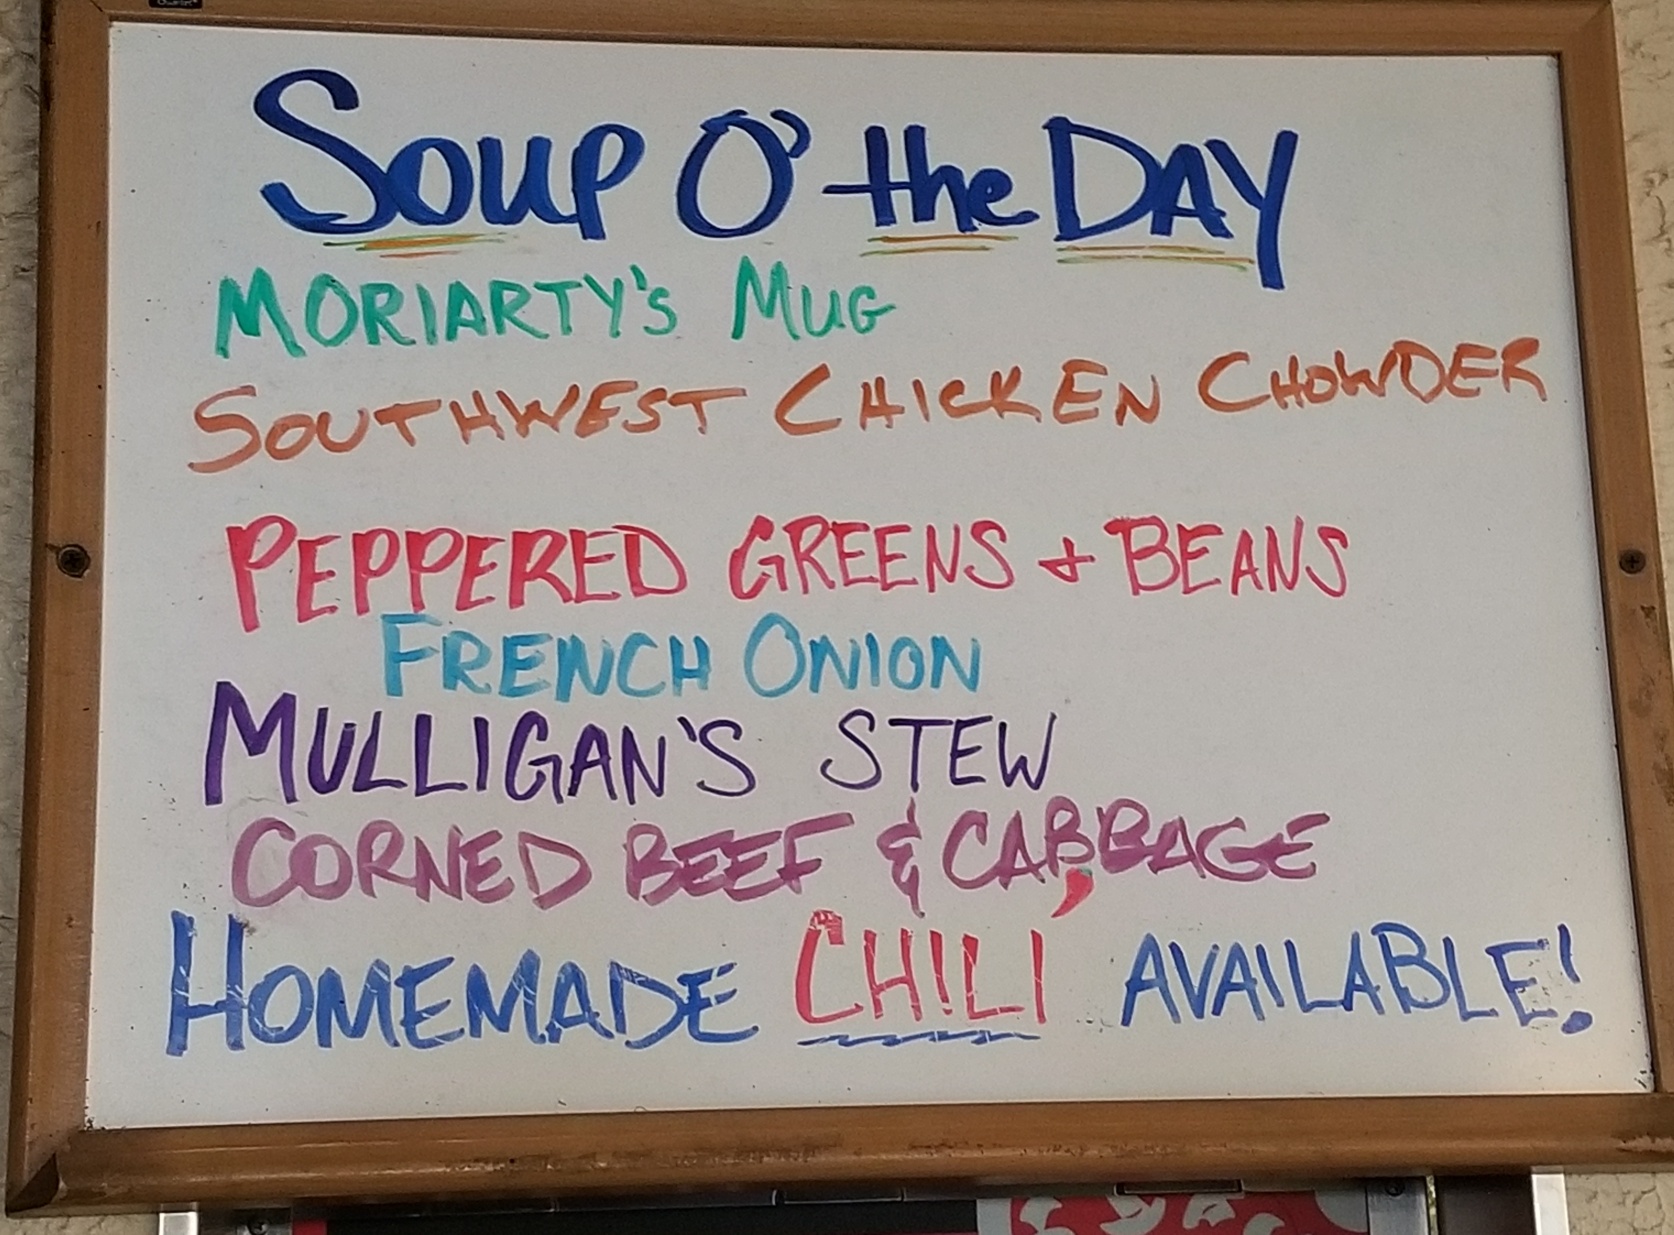 Soup O' the DAY
MORIARTY'S MUG
SOUTHWEST CHICKEN CHOWDER
PEPPERED GREENS + BEANS
FRENCH ONION
MULLIGAN'S STEW
CORNED BEEF & CABBAGE
HOMEMADE CHILI AVAILABLE!